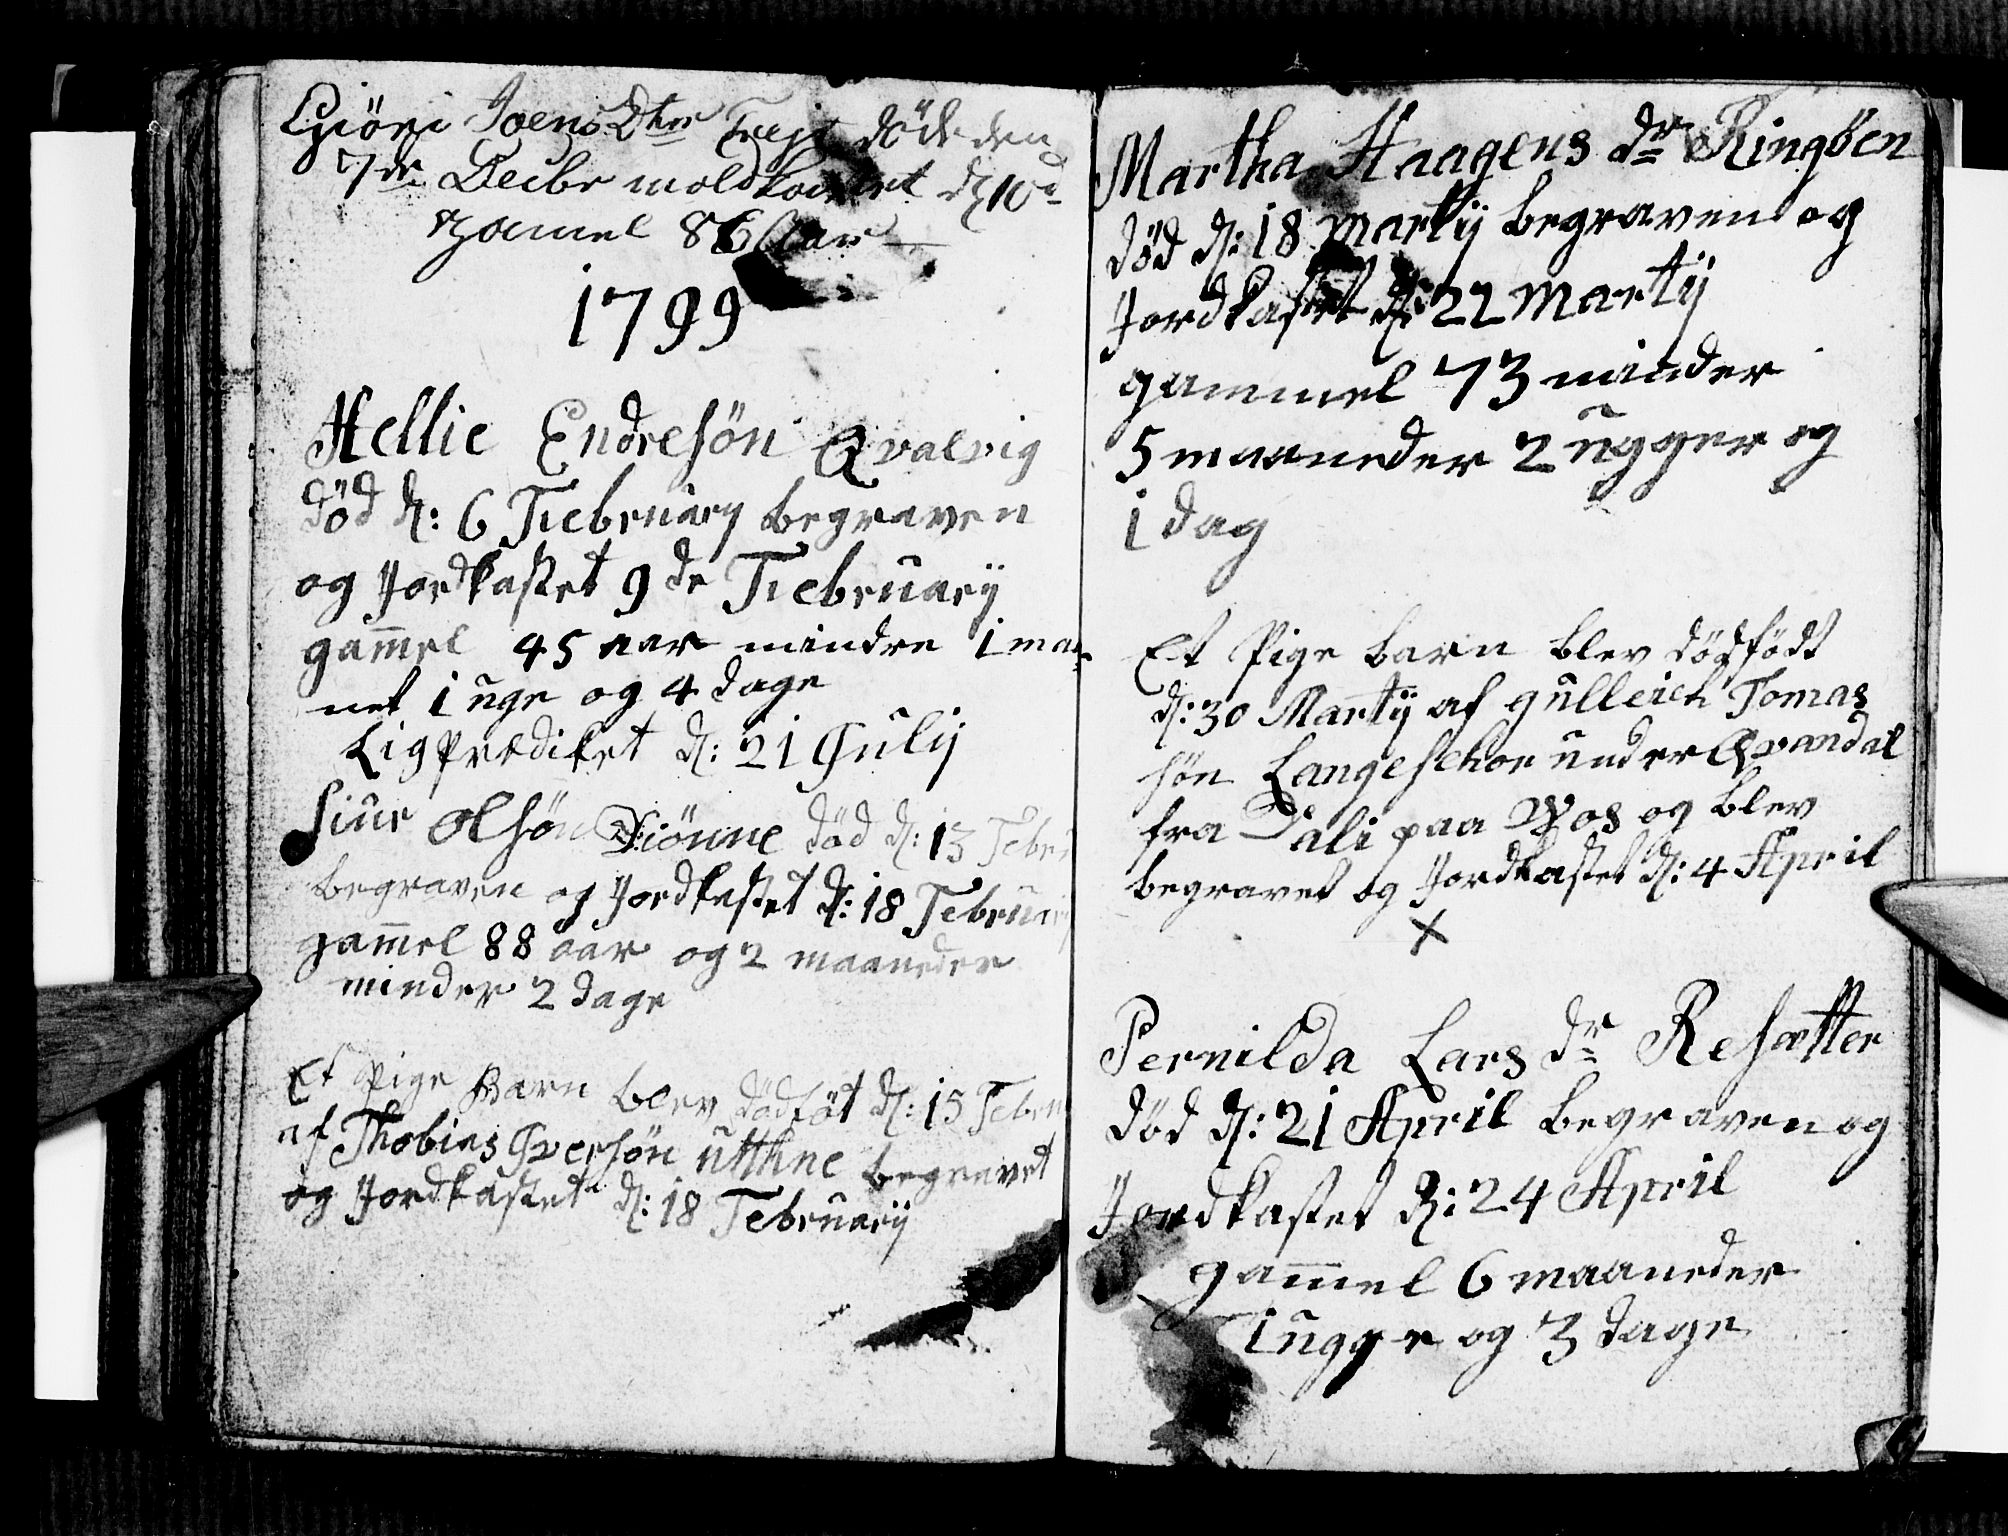 Giöri Joens Dtr döde den
7de Decbr moldkastet d: 10d
gamel 86 Aar
1799
Hellie Endresön Qvalvig
død d: 6 Februarij begraven
og Jordkastet 9de Februarij
gam̄el 45 aar mindre 1 maa
net 1 uge og 4 dage
Ligprædiket d: 21 Julij
Siur Olsön Diönne död d: 13 Febru
begraven og Jordkastet d: 18 Februarij
gam̄el 88 aar og 2 maaneder
minder 2 dage
Et Pige Barn blev dödföt d: 15 Febru
af Thobias Iversön Utthne begravet
og Jordkastet d: 18 Februarij
Martha Haagens dr Ringöen
död d: 18 Martij begraven og
Jordkastet d: 22 Martij
gammel 73 minder
5 maaneder 2 ugger og
1 dag
Et Pige barn blev dödfödt
d: 30 Martij af gulleich Tomas
sön Langeschor under Qvandal
fra Dali paa Vos og blev
begravet og Jordkastet d: 4 April
x
Pernilda Lars dr Resætter
död d: 21 April begraven og
Jordkastet d: 24 April
gam̄el 6 maaneder
1 ugge og 3 dage